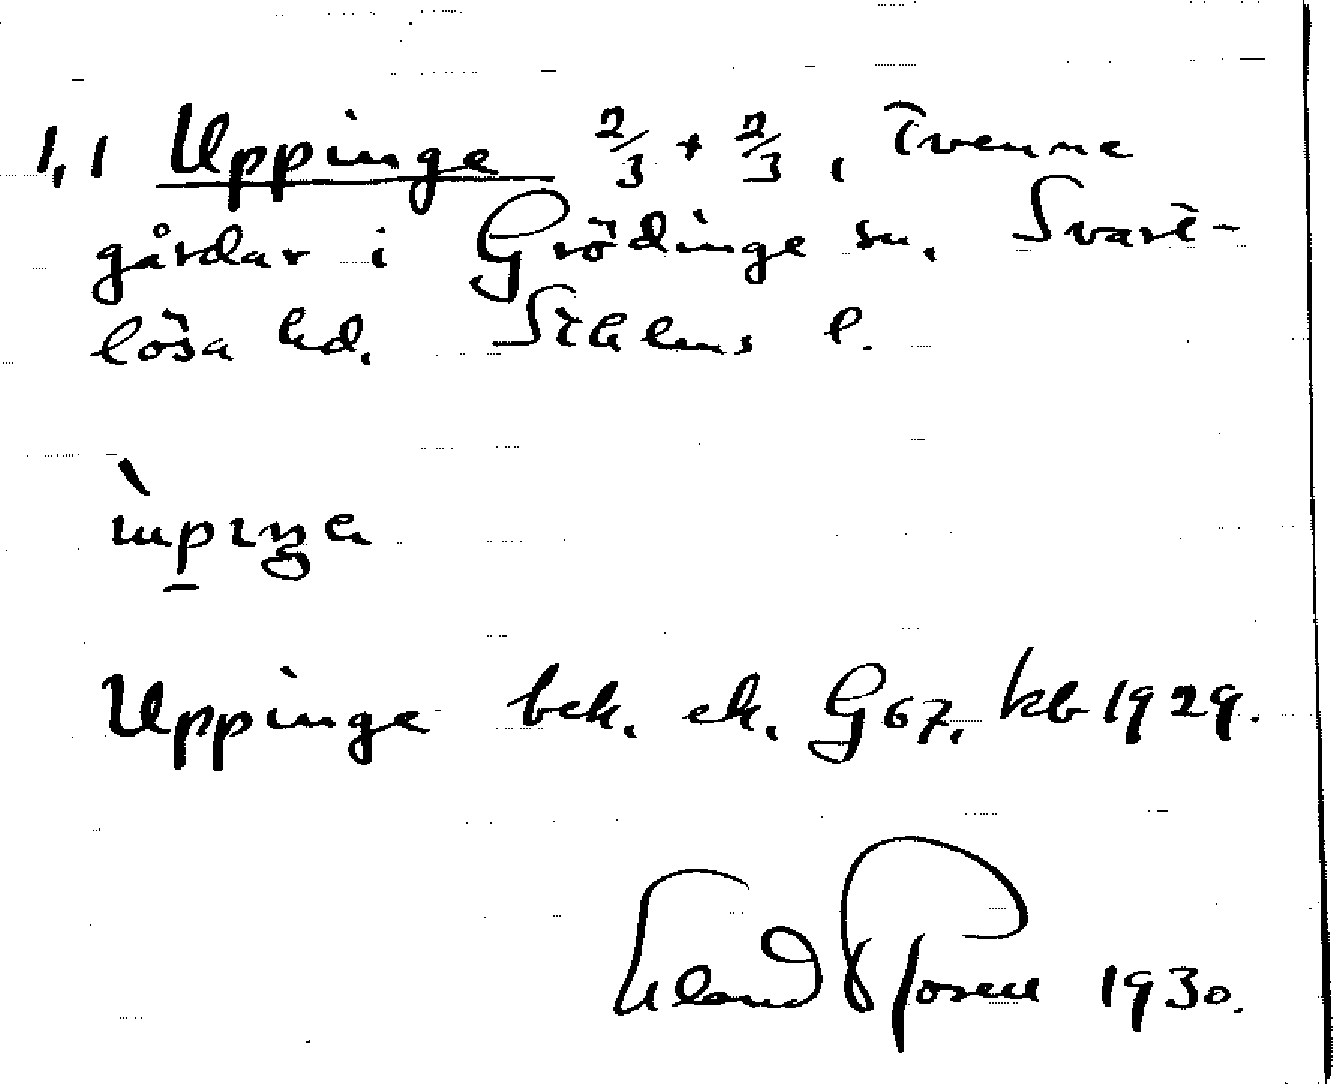 1,1 Uppinge 2/3 + 2/3, Tvenne
gårdar i Grödinge sn. Svart-
lösa hd. Sthlms l.
Uppinge bek. ek. G67, kb 1929.
1930.